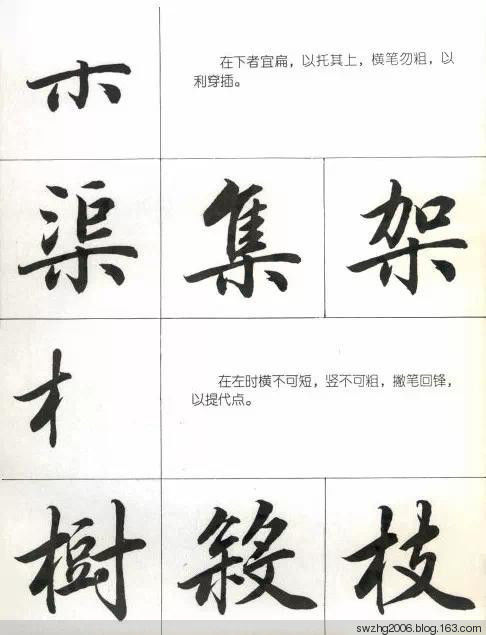 木
在下者宜扁，以托其上，横笔勿粗，以
利穿插。
渠 集 架
木
在左时横不可短，竖不可粗，撇笔回锋，
以提代点。
樹 枝
swzhg2006.blog.163.com